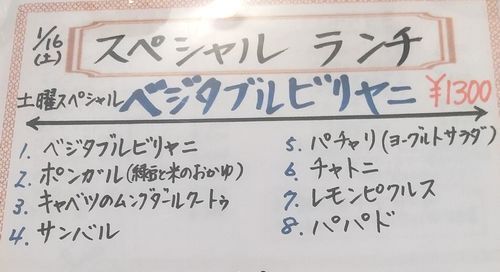 1/16
(土)
スペシャル ランチ
土曜スペシャル ベジタブルビリヤニ ¥1300
1. ベジタブルビリヤニ
2. ポンガル(緑豆と米のおかゆ)
3. キャベツのムングダールクートゥ
4. サンバル
5. パチャリ(ヨーグルトサラダ)
6. チャトニ
7. レモンピクルス
8. パパド